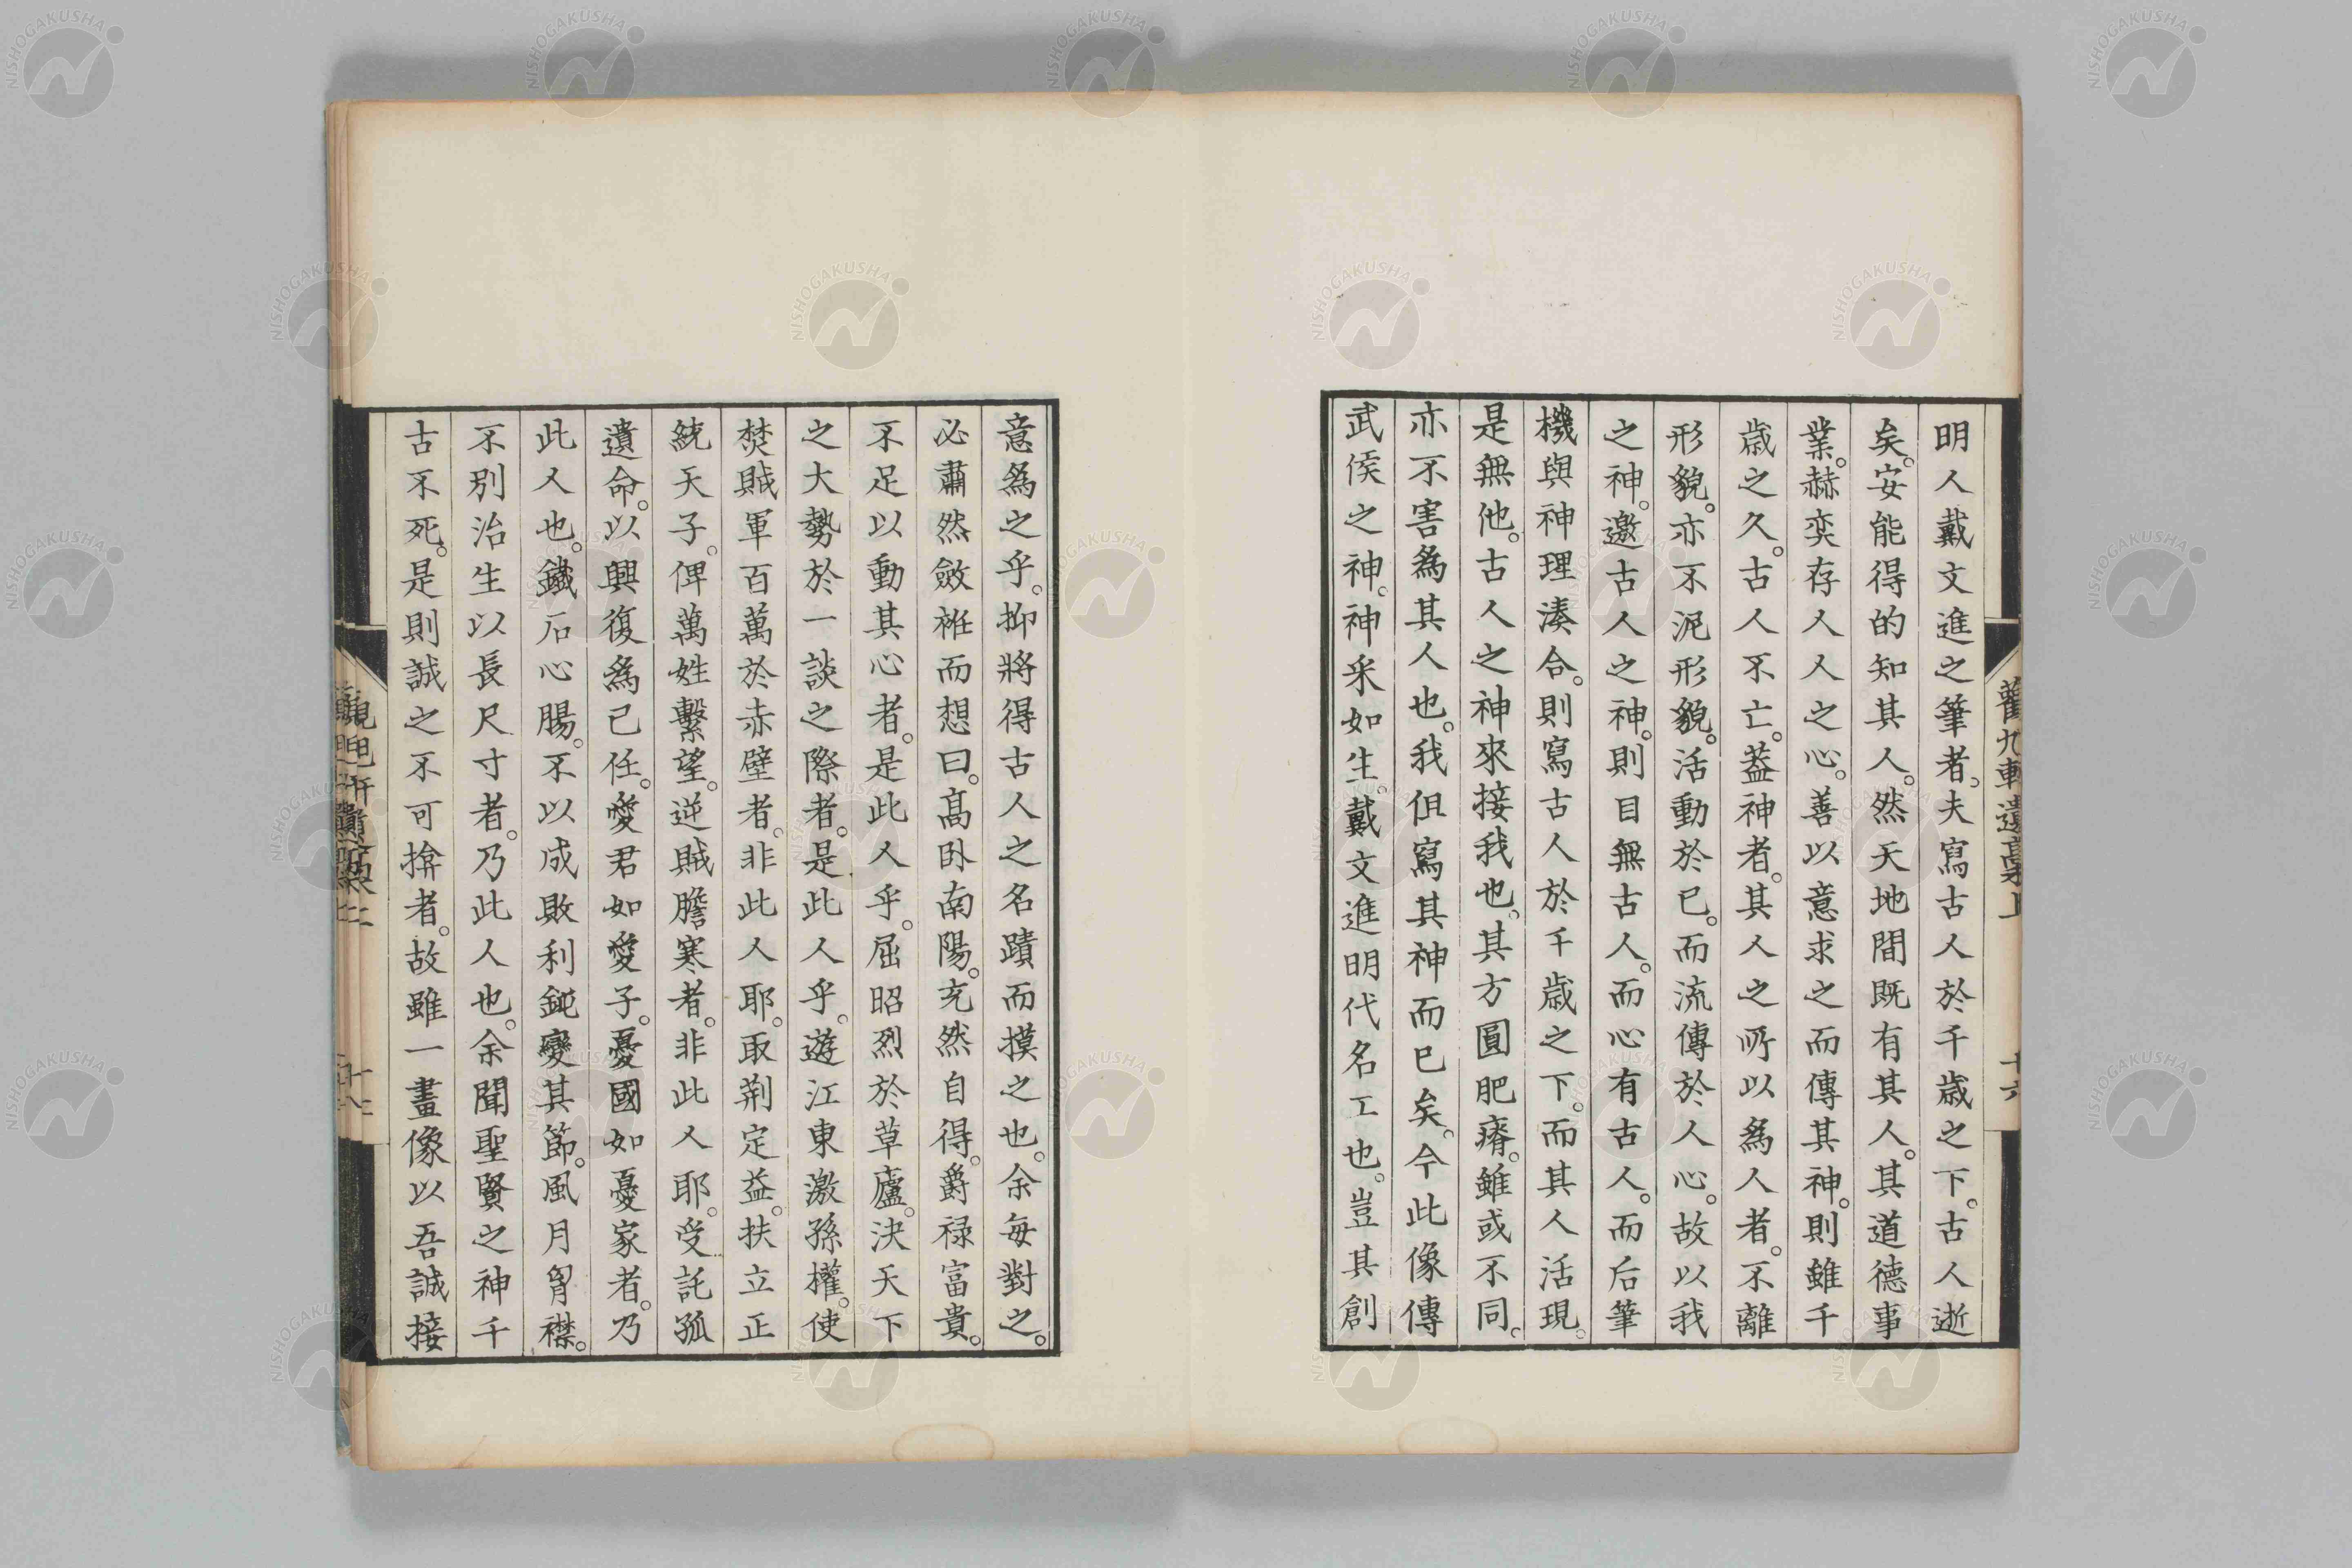 明人戴文進之筆者。夫寫古人於千歲之下。古人逝
矣。安能得的知其人。然天地間既有其人。其道德事
業。赫奕存人人之心。善以意求之而傳其神。則雖千
歲之久。古人不亡。蓋神者。其人之所以為人者。不離
形貌。亦不泥形貌。活動於已。而流傳於人心。故以我
之神。邀古人之神。則目無古人。而心有古人。而后筆
機與神理湊合。則寫古人於千歲之下。而其人活現。
是無他。古人之神來接我也。其方圓肥瘠。雖或不同。
亦不害為其人也。我但寫其神而已矣。今此像傳
武侯之神。神采如生。戴文進明代名工也。豈其創
意為之乎。抑將得古人之名蹟而摸之也。余每對之。
必肅然斂袵而想曰。高臥南陽。充然自得。爵祿富貴。
不足以動其心者。是此人乎。屈昭烈於草廬。決天下
之大勢於一談之際者。是此人乎。遊江東激孫權。使
焚賊軍百萬於赤壁者。非此人耶。取荆定益。扶立正
統天子。俾萬姓繫望。逆賊膽寒者。非此人耶。受託孤
遺命。以興復為己任。愛君如愛子。憂國如憂家者。乃
此人也。鐵石心腸。不以成敗利鈍變其節。風月胷襟。
不別治生以長尺寸者。乃此人也。余聞聖賢之神千
古不死。是則誠之不可揜者。故雖一畫像以吾誠接
NISHOGAKUSHA